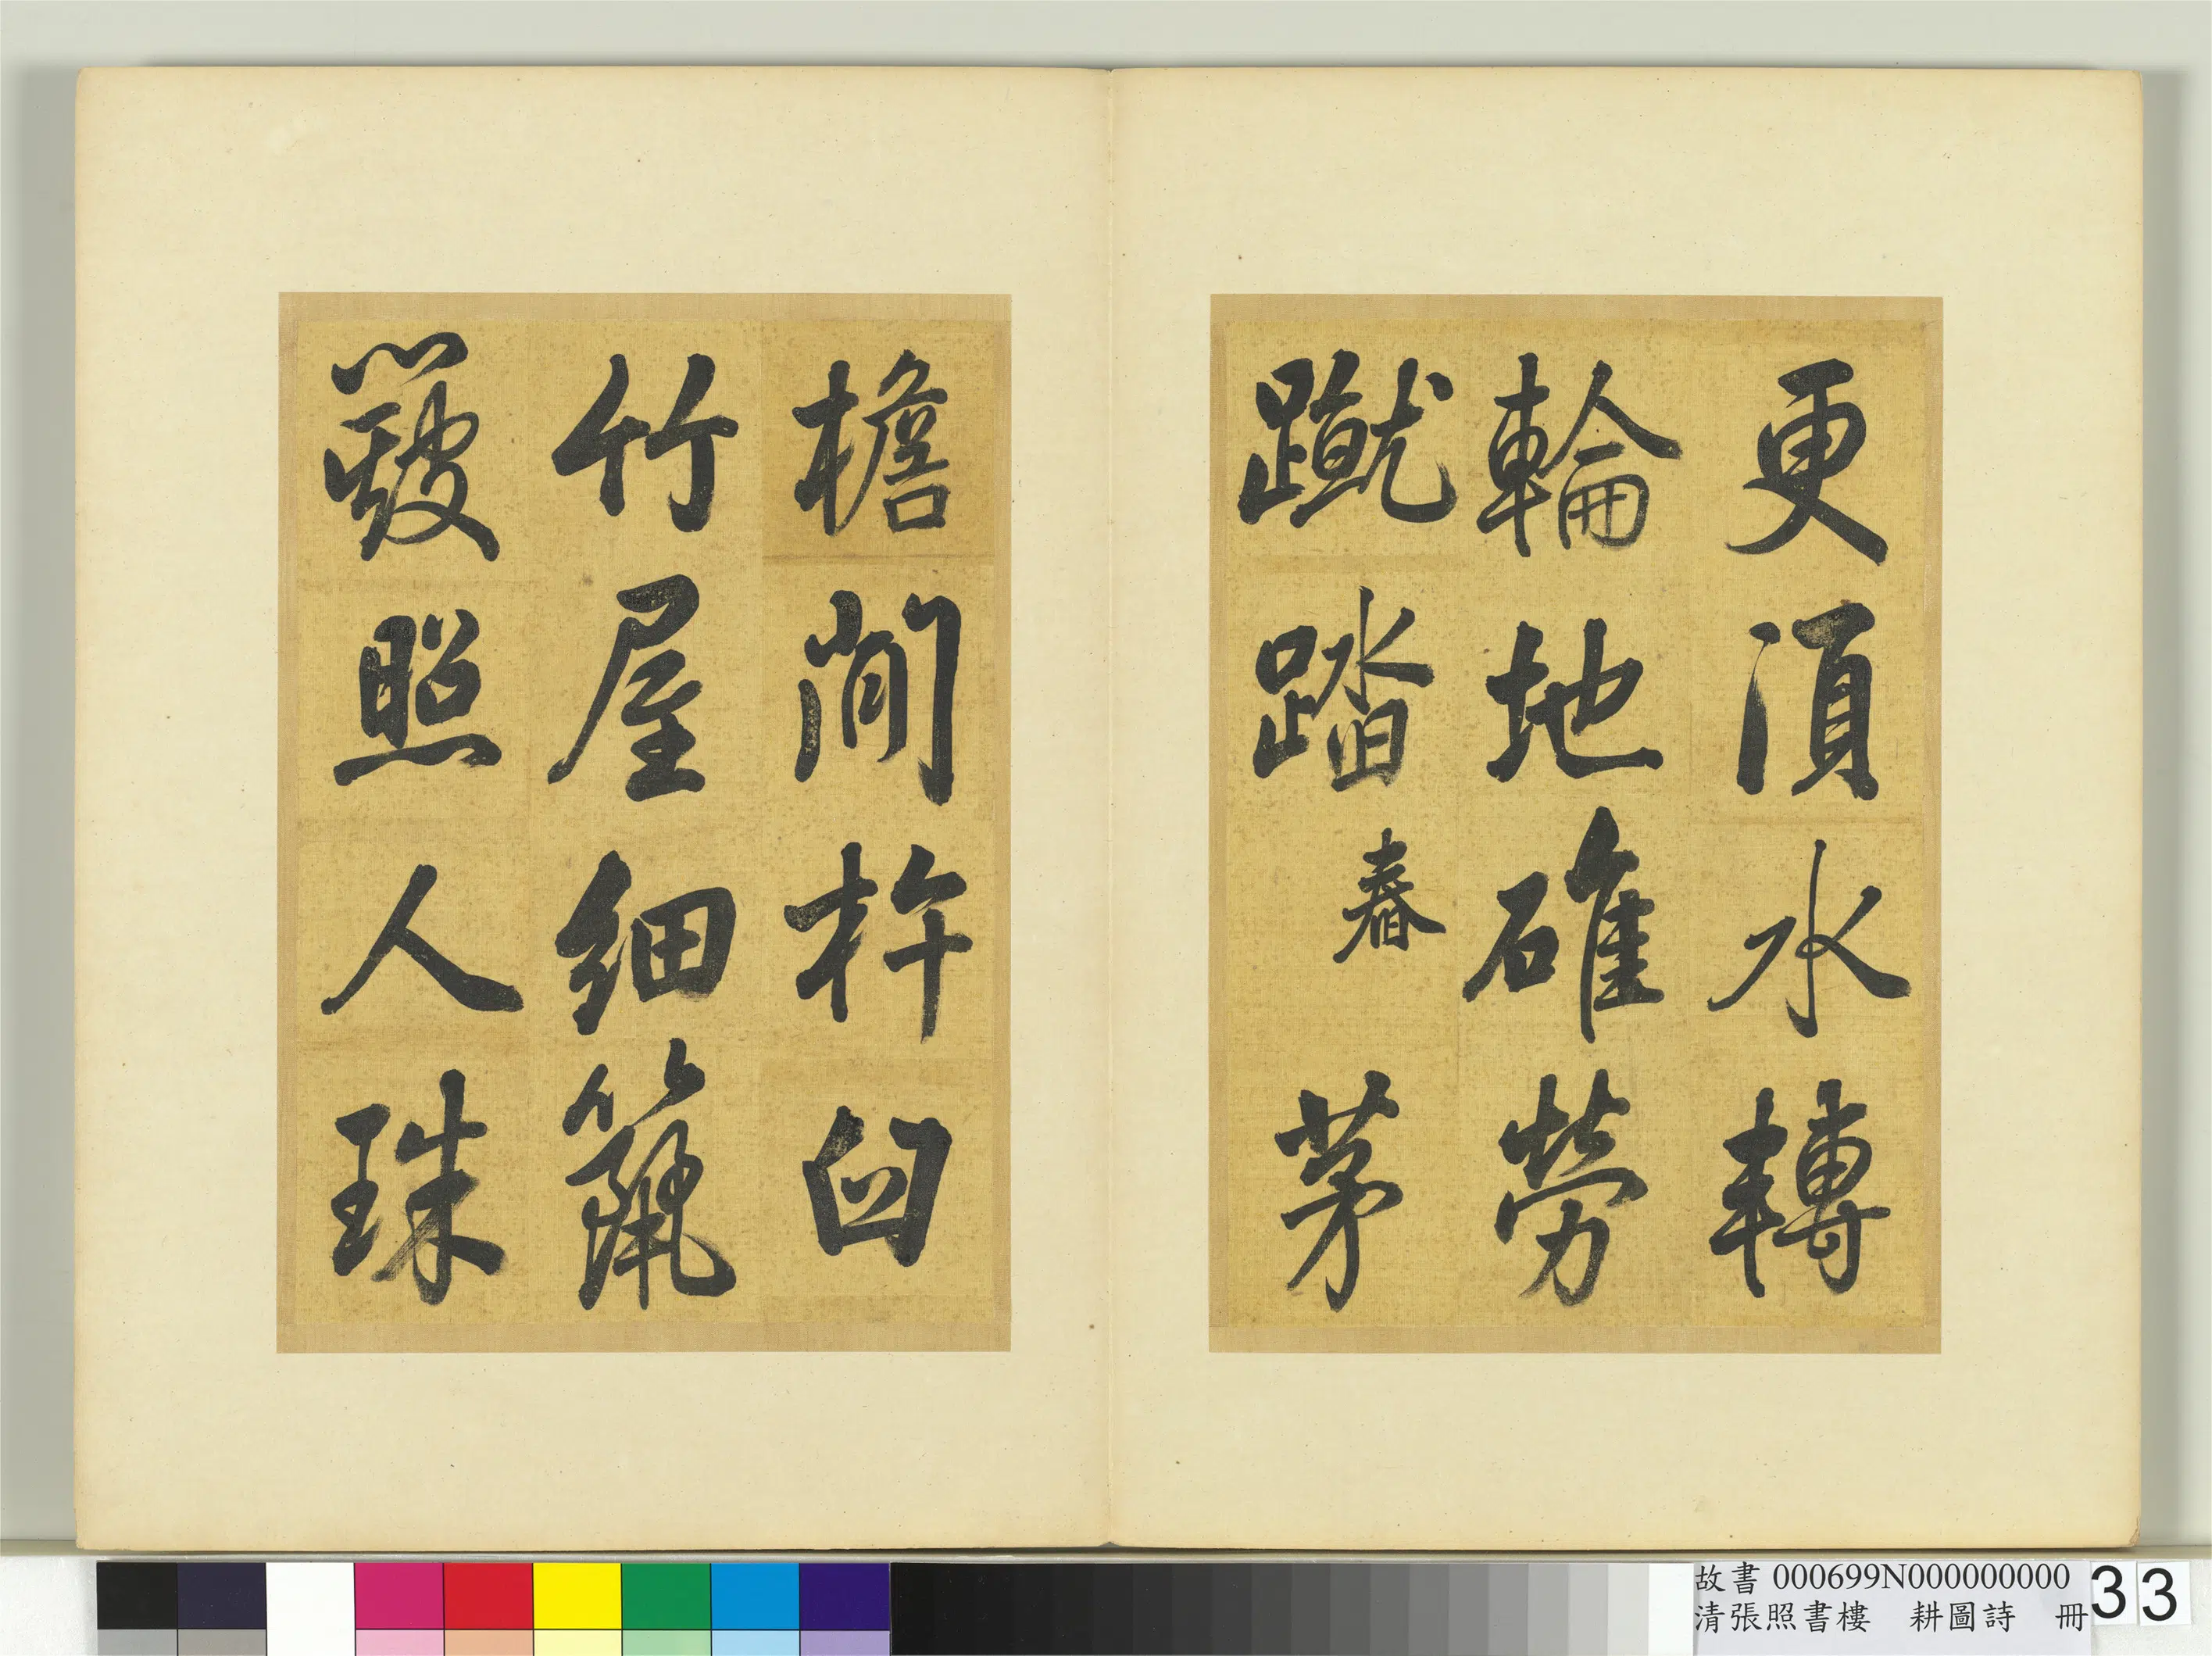 更須水轉
輪地碓勞
蹴踏舂茅
檐閒杵臼
竹屋細籭
簸照人珠
故書 000699N000000000
清張照書樓 耕圖詩 冊
33